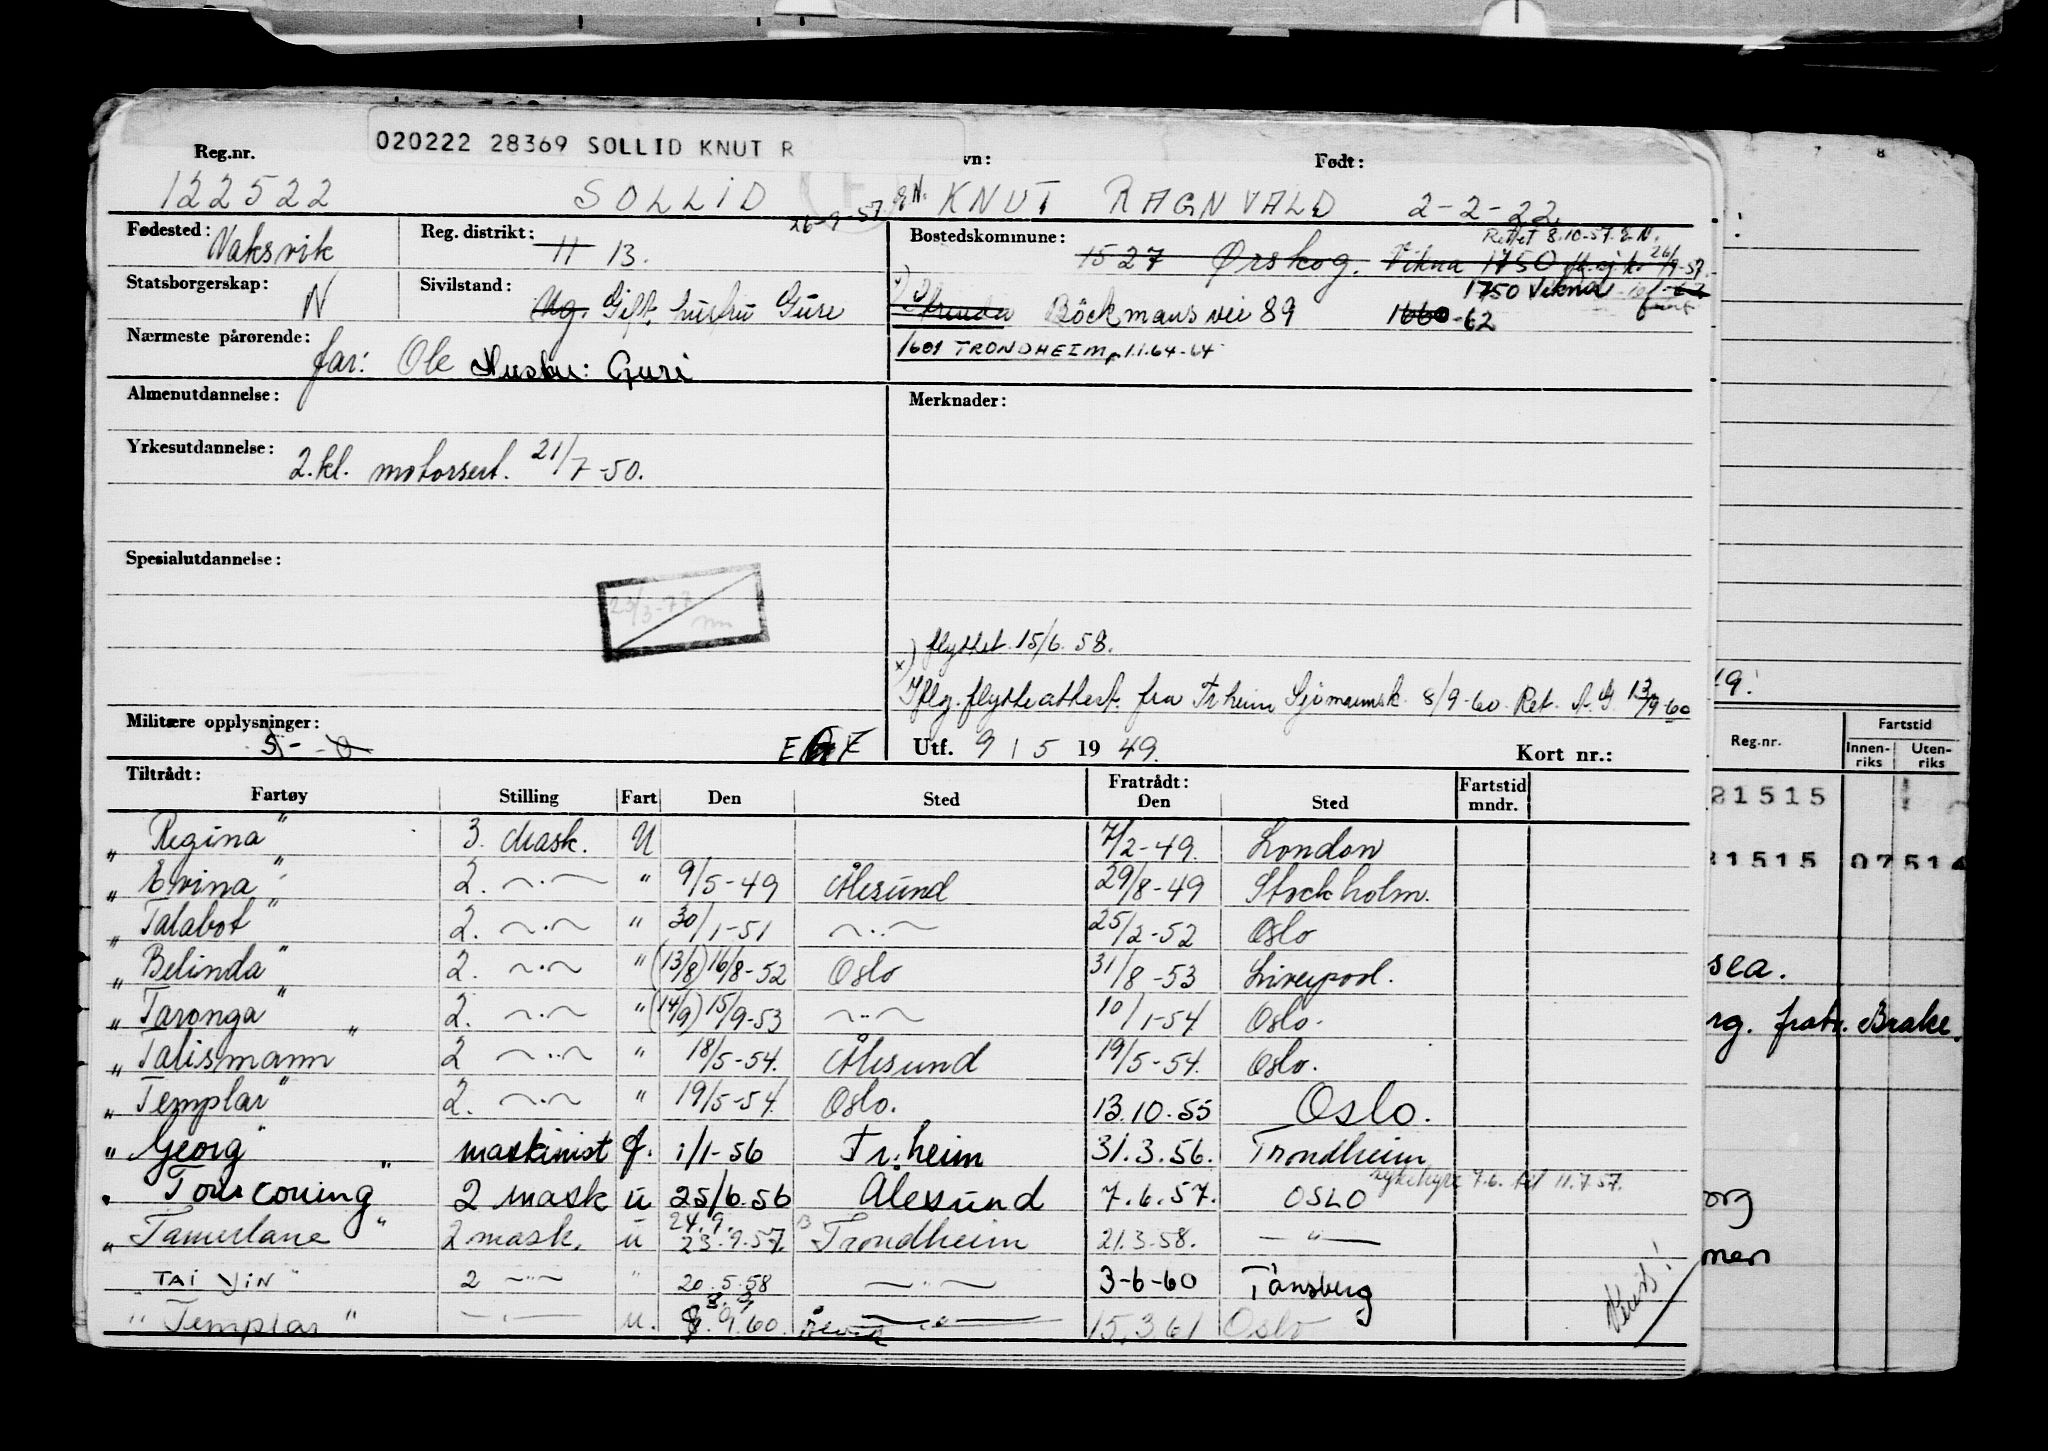 020222 28369 SOLLID KNUT R
Reg.nr. vn: Født:
122522 SOLLID KNUT RAGNVALD 2-2-22
Fødested: Vaksvik Reg. distrikt: 11 13. 26-9-57 Bostedskommune: 1527 Ørskog. Vikna 1750
Rettet 8.10-57. E.N.
Statsborgerskap: N Sivilstand: Ug. Gift, hustru Guri
1750 Vikna
Strinda Böckmans vei 89 1660-62
Nærmeste pårørende: far: Ole Hustru: Guri
1601 TRONDHEIM 1.1.64-64
Almenutdannelse: Merknader:
Yrkesutdannelse: 2.kl. motorsert. 21/7-50.
Spesialutdannelse:
23/3-77
x) flyttet 15/6. 58.
Iflg. flytteattest. fra Tr.heim Sjømannsk. 8/9-60. Ret. 13/9-60
Militære opplysninger: Utf. 9 / 5 19 49. Kort nr.:
Tiltrådt: Fratrådt: Fartstid
Fartøy Stilling Fart Den Sted Den Sted mndr.
„Regina” 3. Mask. U 7/2-49. London
„Evina” 2. —·— " 9/5-49 Ålesund 29/8-49 Stockholm.
„Talabot” 2. —·— " 30/1-51 —··— 25/2-52 Oslo
„Belinda” 2. —·— " (13/8) 16/8-52 Oslo 31/8-53 Liverpool.
„Taronga” 2. —·— " (14/9) 15/9-53 —··— 10/1-54 Oslo.
„Talismann” 2 —··— " 18/5-54. Ålesund 19/5-54. Oslo.
„Templar” 2. —·— " 19/5-54. Oslo. 13.10.55 Oslo.
"Georg" maskinist f. 1/1-56 Tr.heim 31.3.56. Trondheim
sykehyre 7.6. til 11.7.57.
Tourcoing" 2 mask u 25/6.56 Alesund 7.6.57. OSLO
24.9.
„Tamerlane" 2 mask. u 23.9.57. Trondheim 21.3.58. —"—
TAI YIN" 2 —"— " 20.5.58 —"— 3-6-60 Tønsberg
"Templar" —"— u. 9.60. —"— 15.3 61 Oslo
19.
Fartstid
Reg.nr. Innenriks Utenriks
21515
21515 07514
sea.
rg. fratr. Brake.
org
men